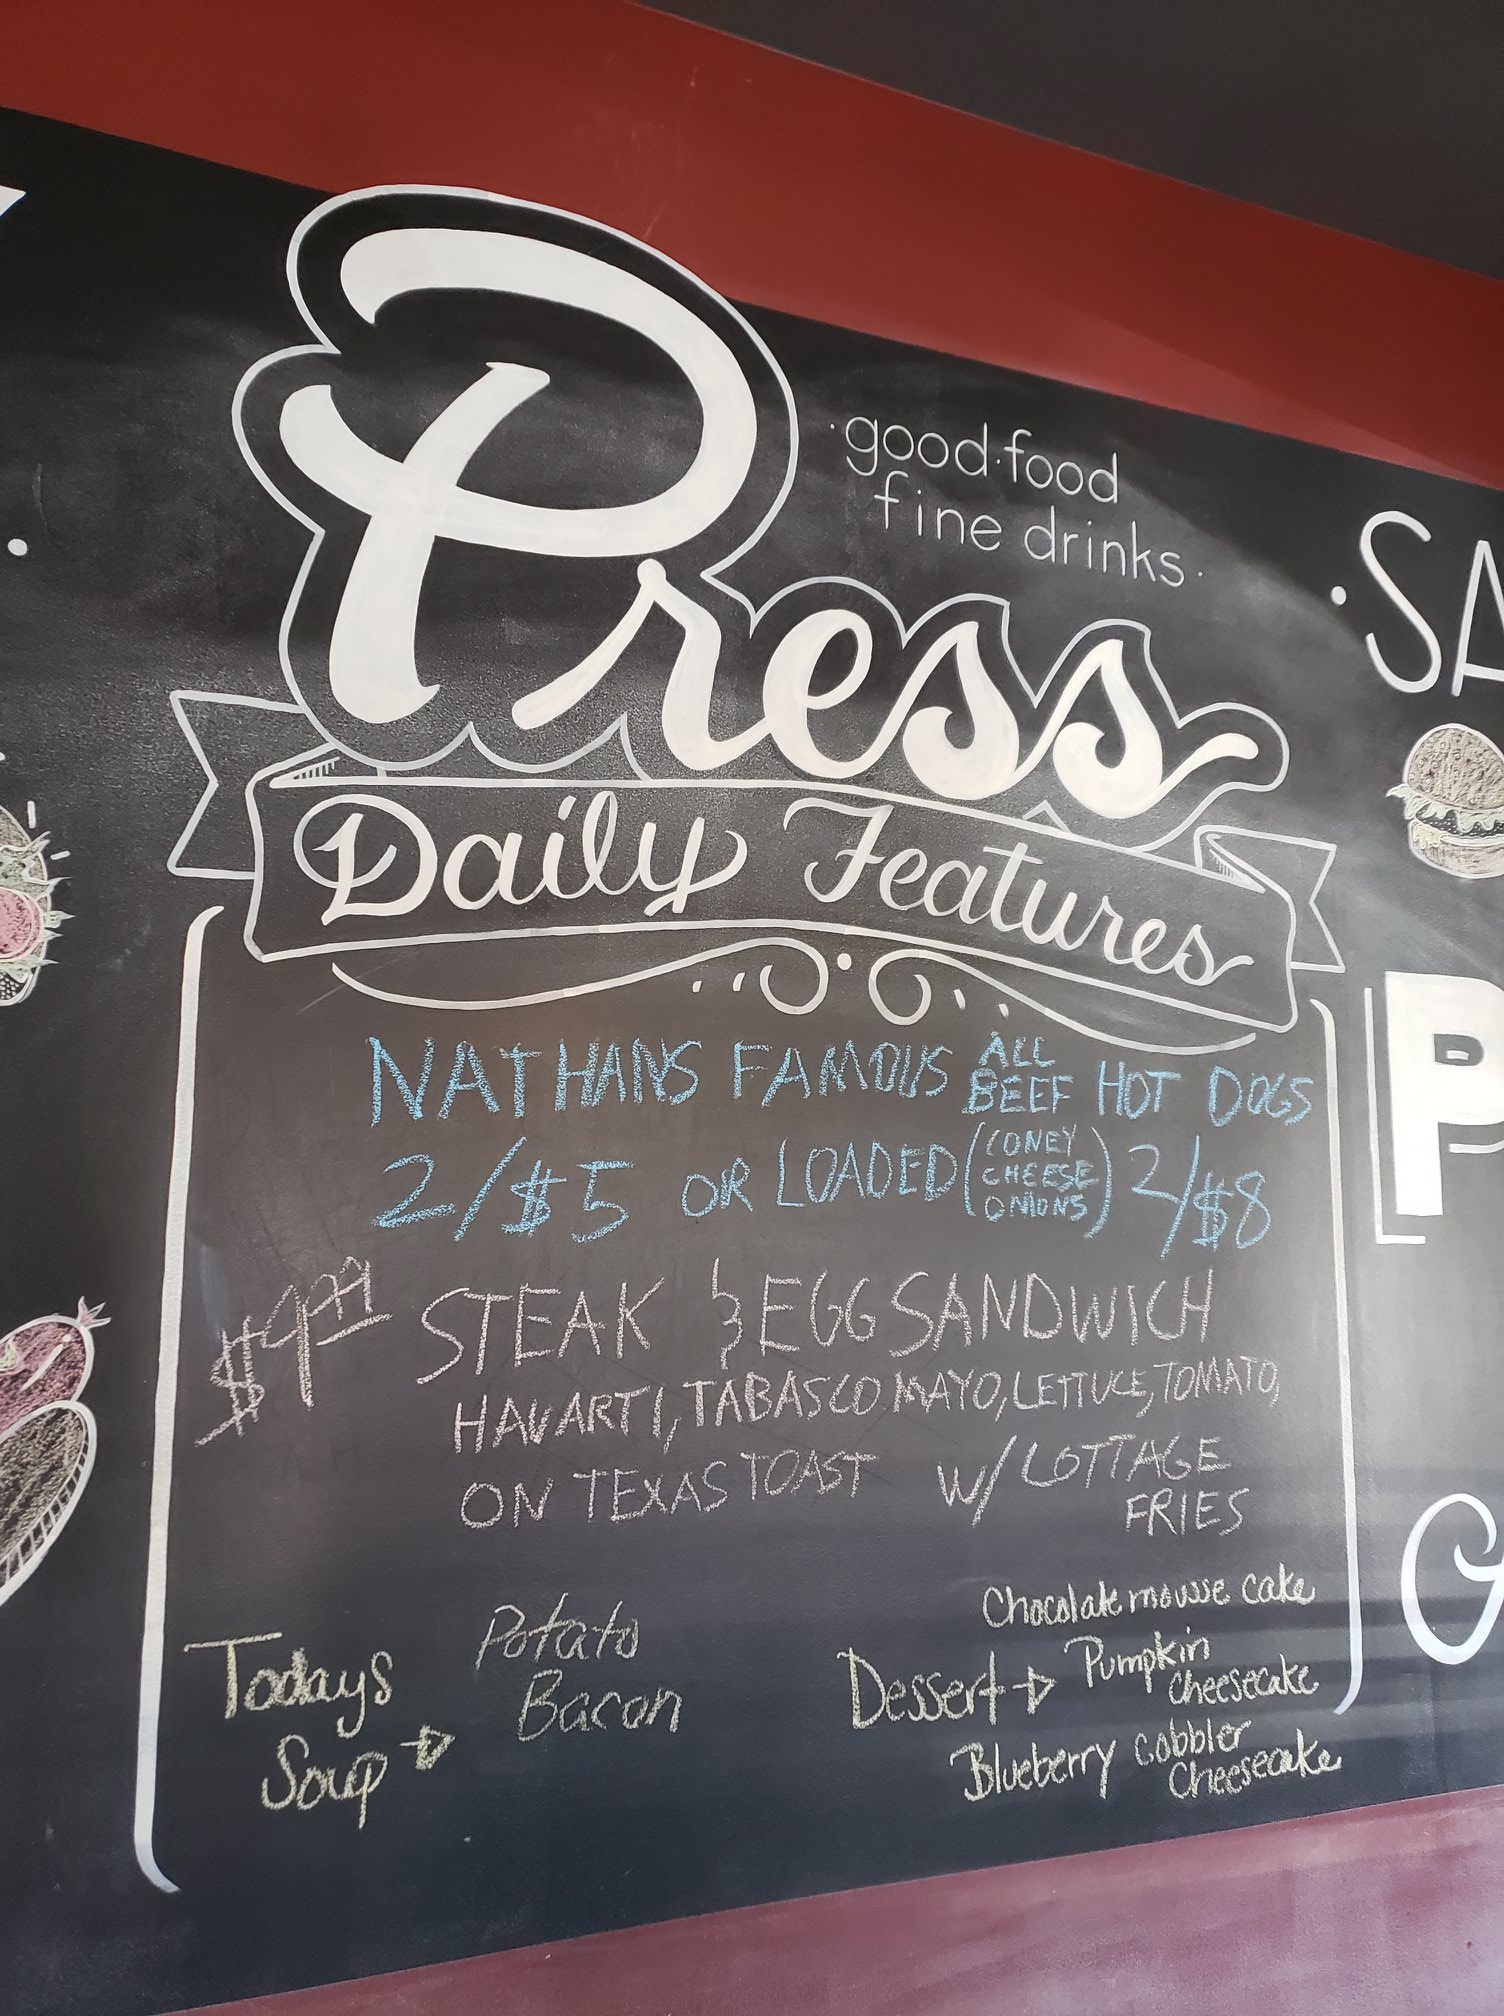 good food
fine drinks
Press
Daily Features
NATHANS FAMOUS ALL BEEF HOT DOGS
2/$5 OR LOADED (CONEY CHEESE ONIONS) 2/$8
$9.99 STEAK & EGG SANDWICH
HAVARTI, TABASCO MAYO, LETTUCE, TOMATO,
ON TEXAS TOAST W/ COTTAGE
FRIES
Todays
Soup
Potato
Bacon
Dessert
Chocolate mousse cake
Pumpkin
Cheesecake
Blueberry cobbler
Cheesecake
SA
P